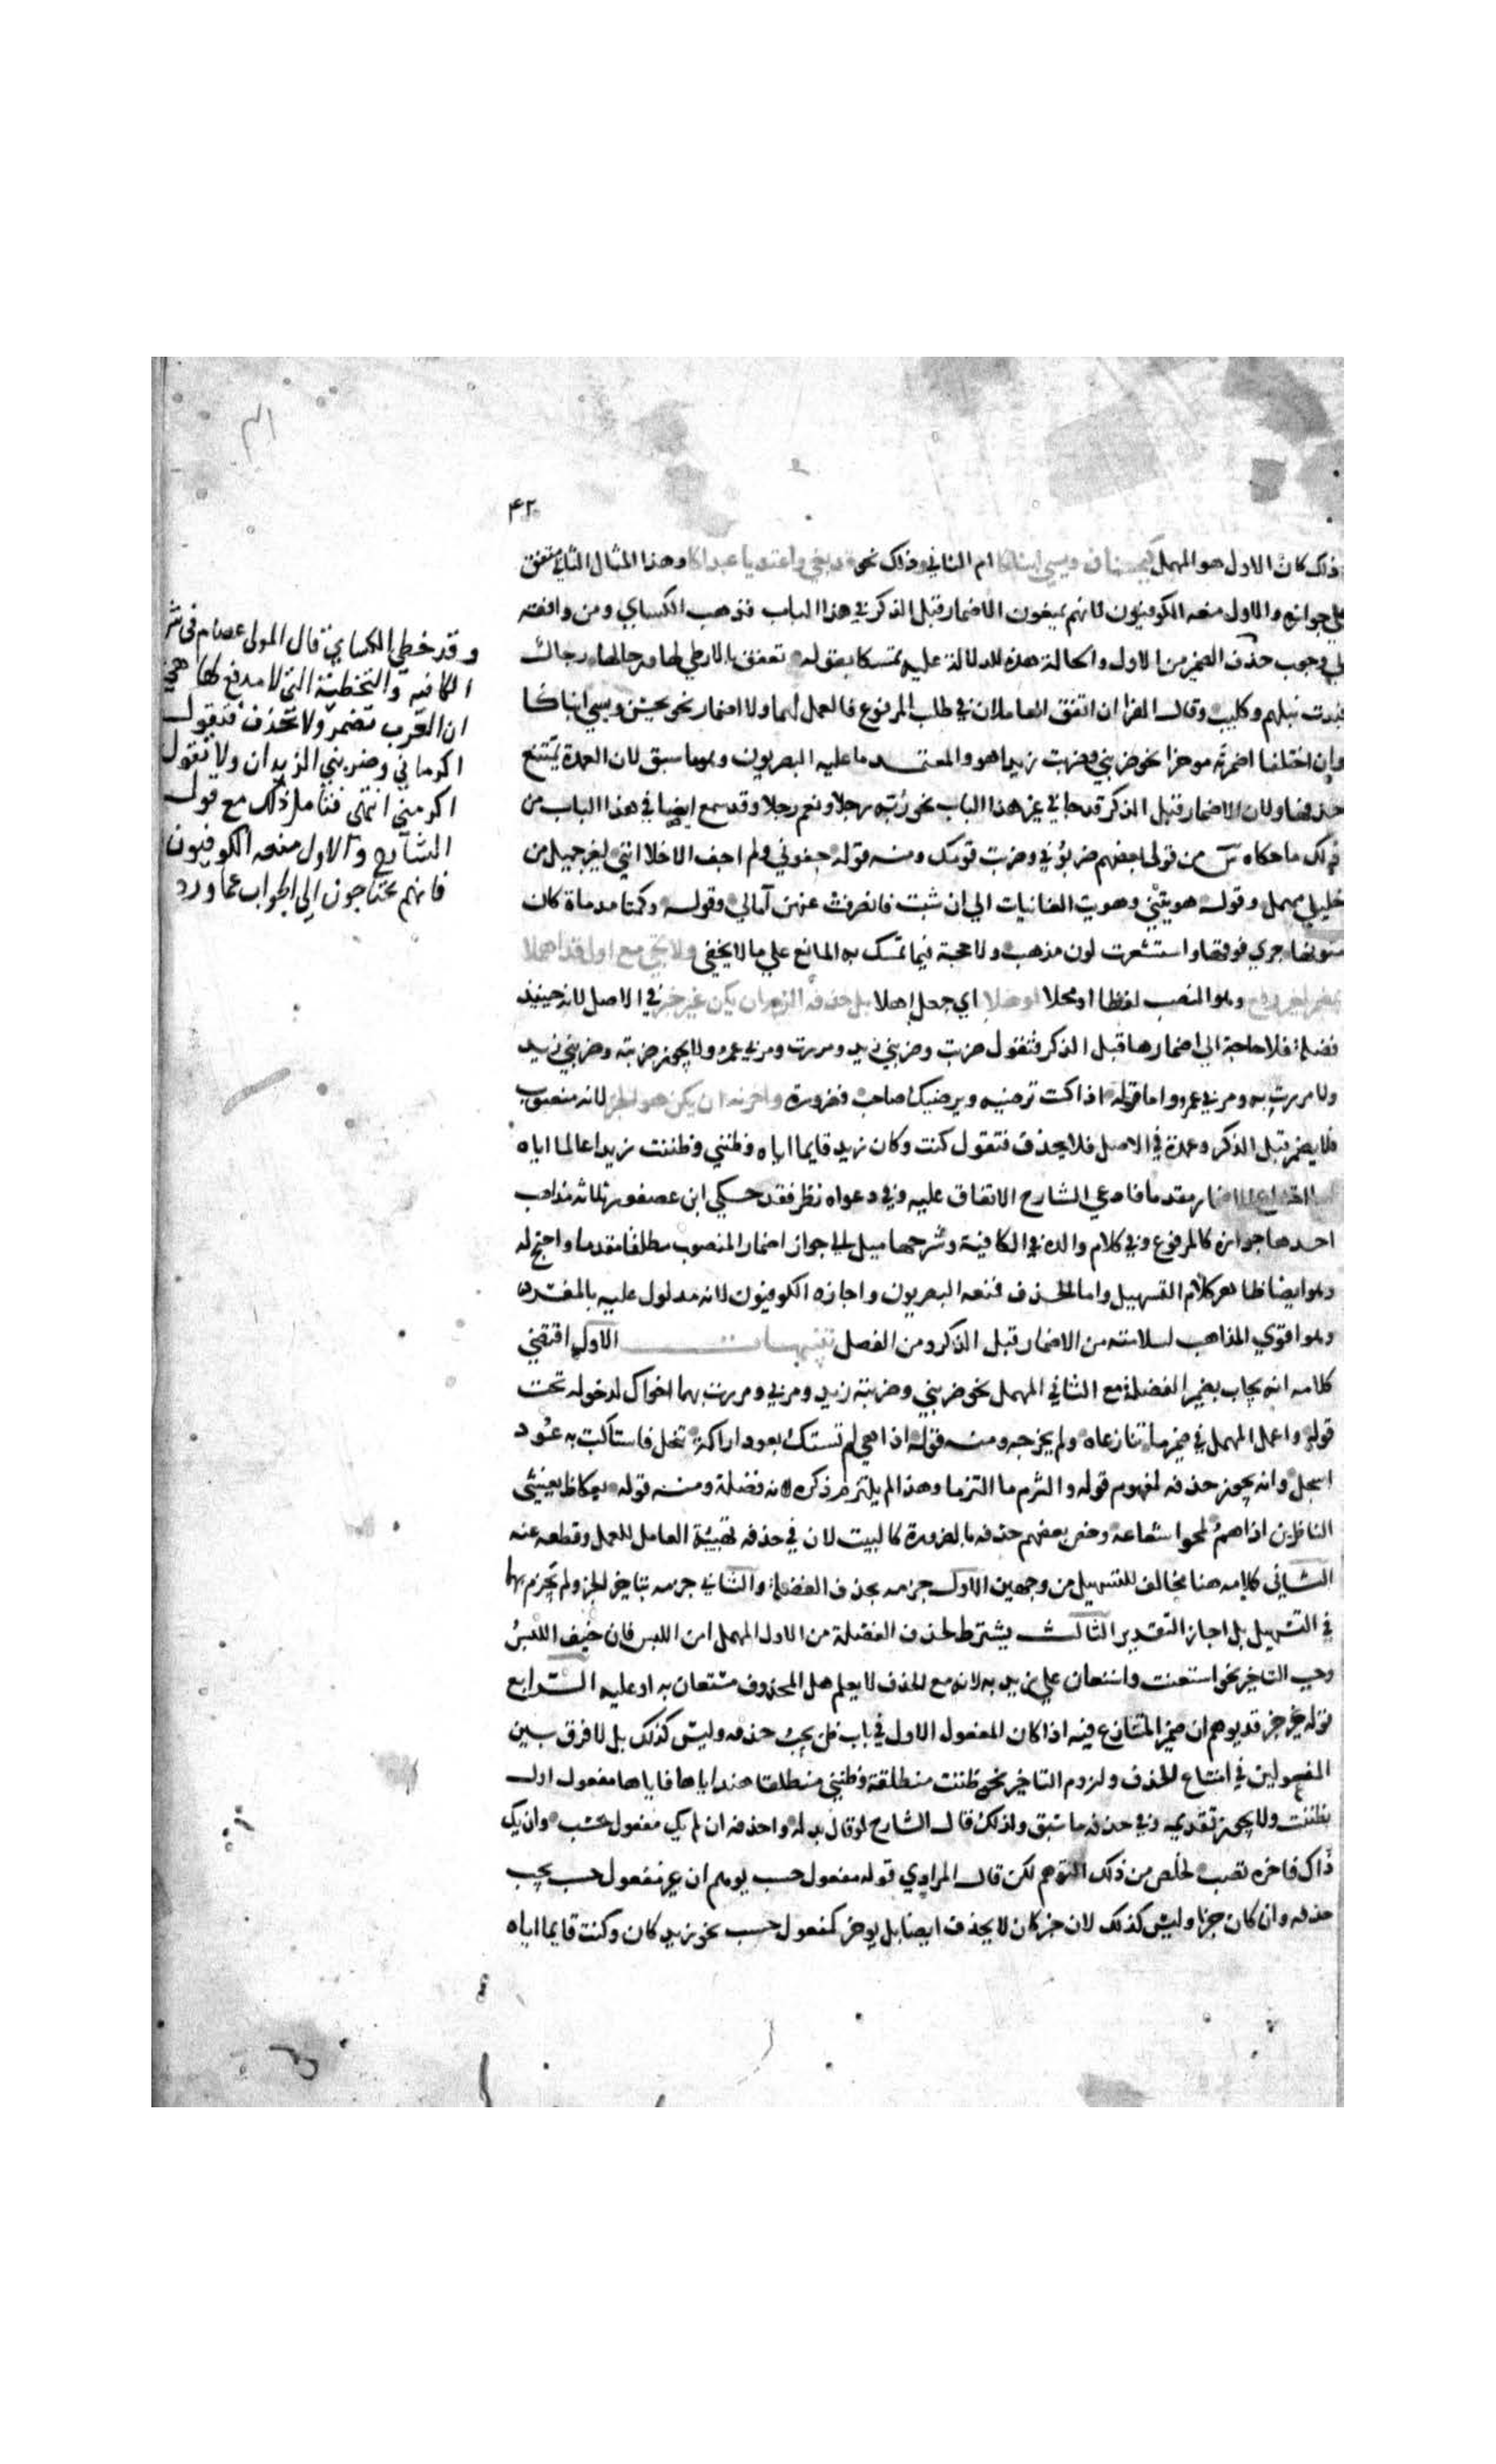 ٤٢
ذلك كان الاول هو المهمل كيحسنان ويسي ابناكا ام الثاني وذلك نحو بغي واعتديا عبداكا وهذا المثال الثاني متفق
علي جوازه والاول منعه الكوفيون لانهم يمنعون الاضمار قبل الذكر في هذا الباب فذهب الكساي ومن وافقه
الي وجوب حذف الضمير من الاول والحالة هذه للدلالة عليه تمسكا بقوله تعفق بالارطي لها وارادها رجال
فبذت نبلهم وكليب وقال الفرا ان اتفق العاملان في طلب المرفوع فالعمل لهما ولا اضمار نحو يحسن ويسي ابناكا
وان اختلفا اضمرته موخرا نحو ضربني وضربت زيدا هو والمعتمد ما عليه البصريون وهو ما سبق لان العمدة يمتنع
حذفها ولان الاضمار قبل الذكر قد جا في غير هذا الباب نحو ربه رجلا ونعم رجلا وقد سمع ايضا في هذا الباب من
ذلك ما حكاه س من قول بعضهم ضربوني وضربت قومك ومنه قوله جفوني ولم اجف الاخلا انني لغير جميل من
خليلي مهمل وقوله هوينني وهويت الغانيات الي ان شبت فانصرفت عنهن آمالي وقوله وكمتا مدماة كان
متونها جري فوقها واستشعرت لون مذهب ولا حجة فيما تمسك به المانع علي ما لا يخفي ولا تجي مع اول قد اهملا
بمضمر لغير رفع وهو النصب لفظا او محلا اوهلا اي جعل اهلا بل حذفه الزم ان يكن غير خبر في الاصل لانه حينيذ
فضلة فلا حاجة الي اضمارها قبل الذكر فتقول ضربت وضربني زيد ومررت ومر بي عمرو ولا يجوز ضربته وضربني زيد
ولا مررت به ومر بي عمرو واما قوله اذا كنت ترضيه ويرضيك صاحب فضرورة واخرنه ان يكن هو الخبر لانه منصوب
فلا يضمر قبل الذكر وعمدة في الاصل فلا يحذف فتقول كنت وكان زيد قايما اياه وظنني وظننت زيدا عالما اياه
مقدما فادعي الشارح الاتفاق عليه وفي دعواه نظر فقد حكي ابن عصفور ثلاثة مذاهب
احدها جوازه كالمرفوع وفي كلام والده في الكافية وشرحها ميل الي جواز اضمار المنصوب مطلقا مقدما واحتج له
وهو ايضا ظاهر كلام التسهيل واما الحذف فمنعه البصريون واجازه الكوفيون لانه مدلول عليه بالمفسر
وهو اقوي المذاهب لسلامته من الاضمار قبل الذكر ومن الفصل تنبيهات الاول اقتضي
كلامه انه يجاب بضمير الفضلة مع الثاني المهمل نحو ضربني وضربته زيد ومر بي ومررت بهما اخواك لدخوله تحت
قوله واعمل المهمل في ضمير ما تنازعاه ولم يخرجه ومنه قوله اذا هي لم تستك بعود اراكة تنخل فاستاكت به عود
اسحل وانه يجوز حذفه لمفهوم قوله والتزم ما التزما وهذا لم يلتزم ذكره لانه فضلة ومنه قوله بعكاظ يعشي
الناظرين اذا هم لمحوا شعاعه وخص بعضهم حذفه بالضرورة كالبيت لان في حذفه تهيئة العامل للعمل وقطعه عنه
الثاني كلامه هنا مخالف للتسهيل من وجهين الاول جزمه بحذف الفضلة والثاني جزمه بتاخير الخبر ولم يجزم بهما
في التسهيل بل اجاز التقديم الثالث يشترط لحذف الفضلة من الاول المهمل امن اللبس فان خيف اللبس
وجب التاخير نحو استعنت واستعان علي زيد به لانه مع الحذف لا يعلم هل المحذوف مستعان به او عليه الرابع
قوله غير خبر قد يوهم ان ضمير المتنازع فيه اذا كان المفعول الاول في باب ظن يجب حذفه وليس كذلك بل لا فرق بين
المفعولين في امتناع الحذف ولزوم التاخير نحو ظننت منطلقة وظننني منطلقا هند اياها فاياها مفعول اول
بظننت ولا يجوز تقديمه وفي حذفه ما سبق ولذلك قال الشارح لو قال بدله واحذفه ان لم يك مفعول حسب وان يك
ذاك فاخره تصب لخلص من ذلك التوهم لكن قال المرادي قوله مفعول حسب يوهم ان غير مفعول حسب يجب
حذفه وان كان خبرا وليس كذلك لان خبر كان لا يحذف ايضا بل يوخر كمفعول حسب نحو زيد كان وكنت قايما اياه
وقد خطي الكساي قال المولي عصام في شر
الكافية والتخطئة التي لا مدفع لها هي
ان العرب تضمر ولا تحذف فتقول
اكرماني وضربني الزيدان ولا تقول
اكرمني انتهي فتامل ذلك مع قول
الشارح والاول منعه الكوفيون
فانهم يحتاجون الي الجواب عما ورد